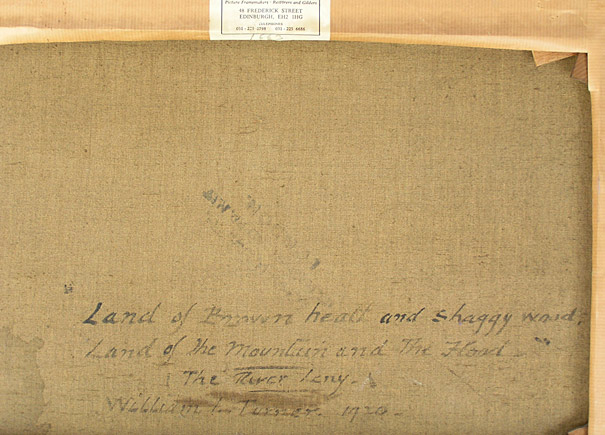 Picture Framemakers · Restorers and Gilders
48 FREDERICK STREET
EDINBURGH, EH2 1HG
TELEPHONE
Land of Brown heatt and shaggy wood,
Land of the Mountain and The Flood
The River Leny.
William L. Turner. 1920